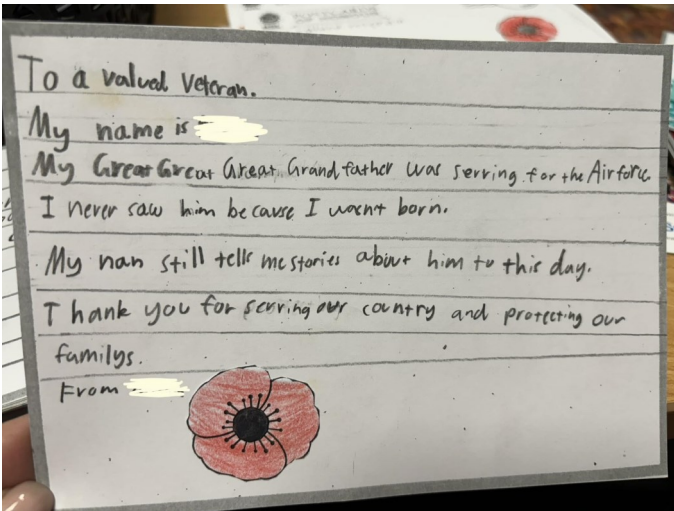 To a valued Veteran.
My name is
My Great Great Great Grandfather was serving for the Airforce.
I never saw him because I wasnt born.
My nan still tells me stories about him to this day.
Thank you for serving our country and protecting our
familys.
From